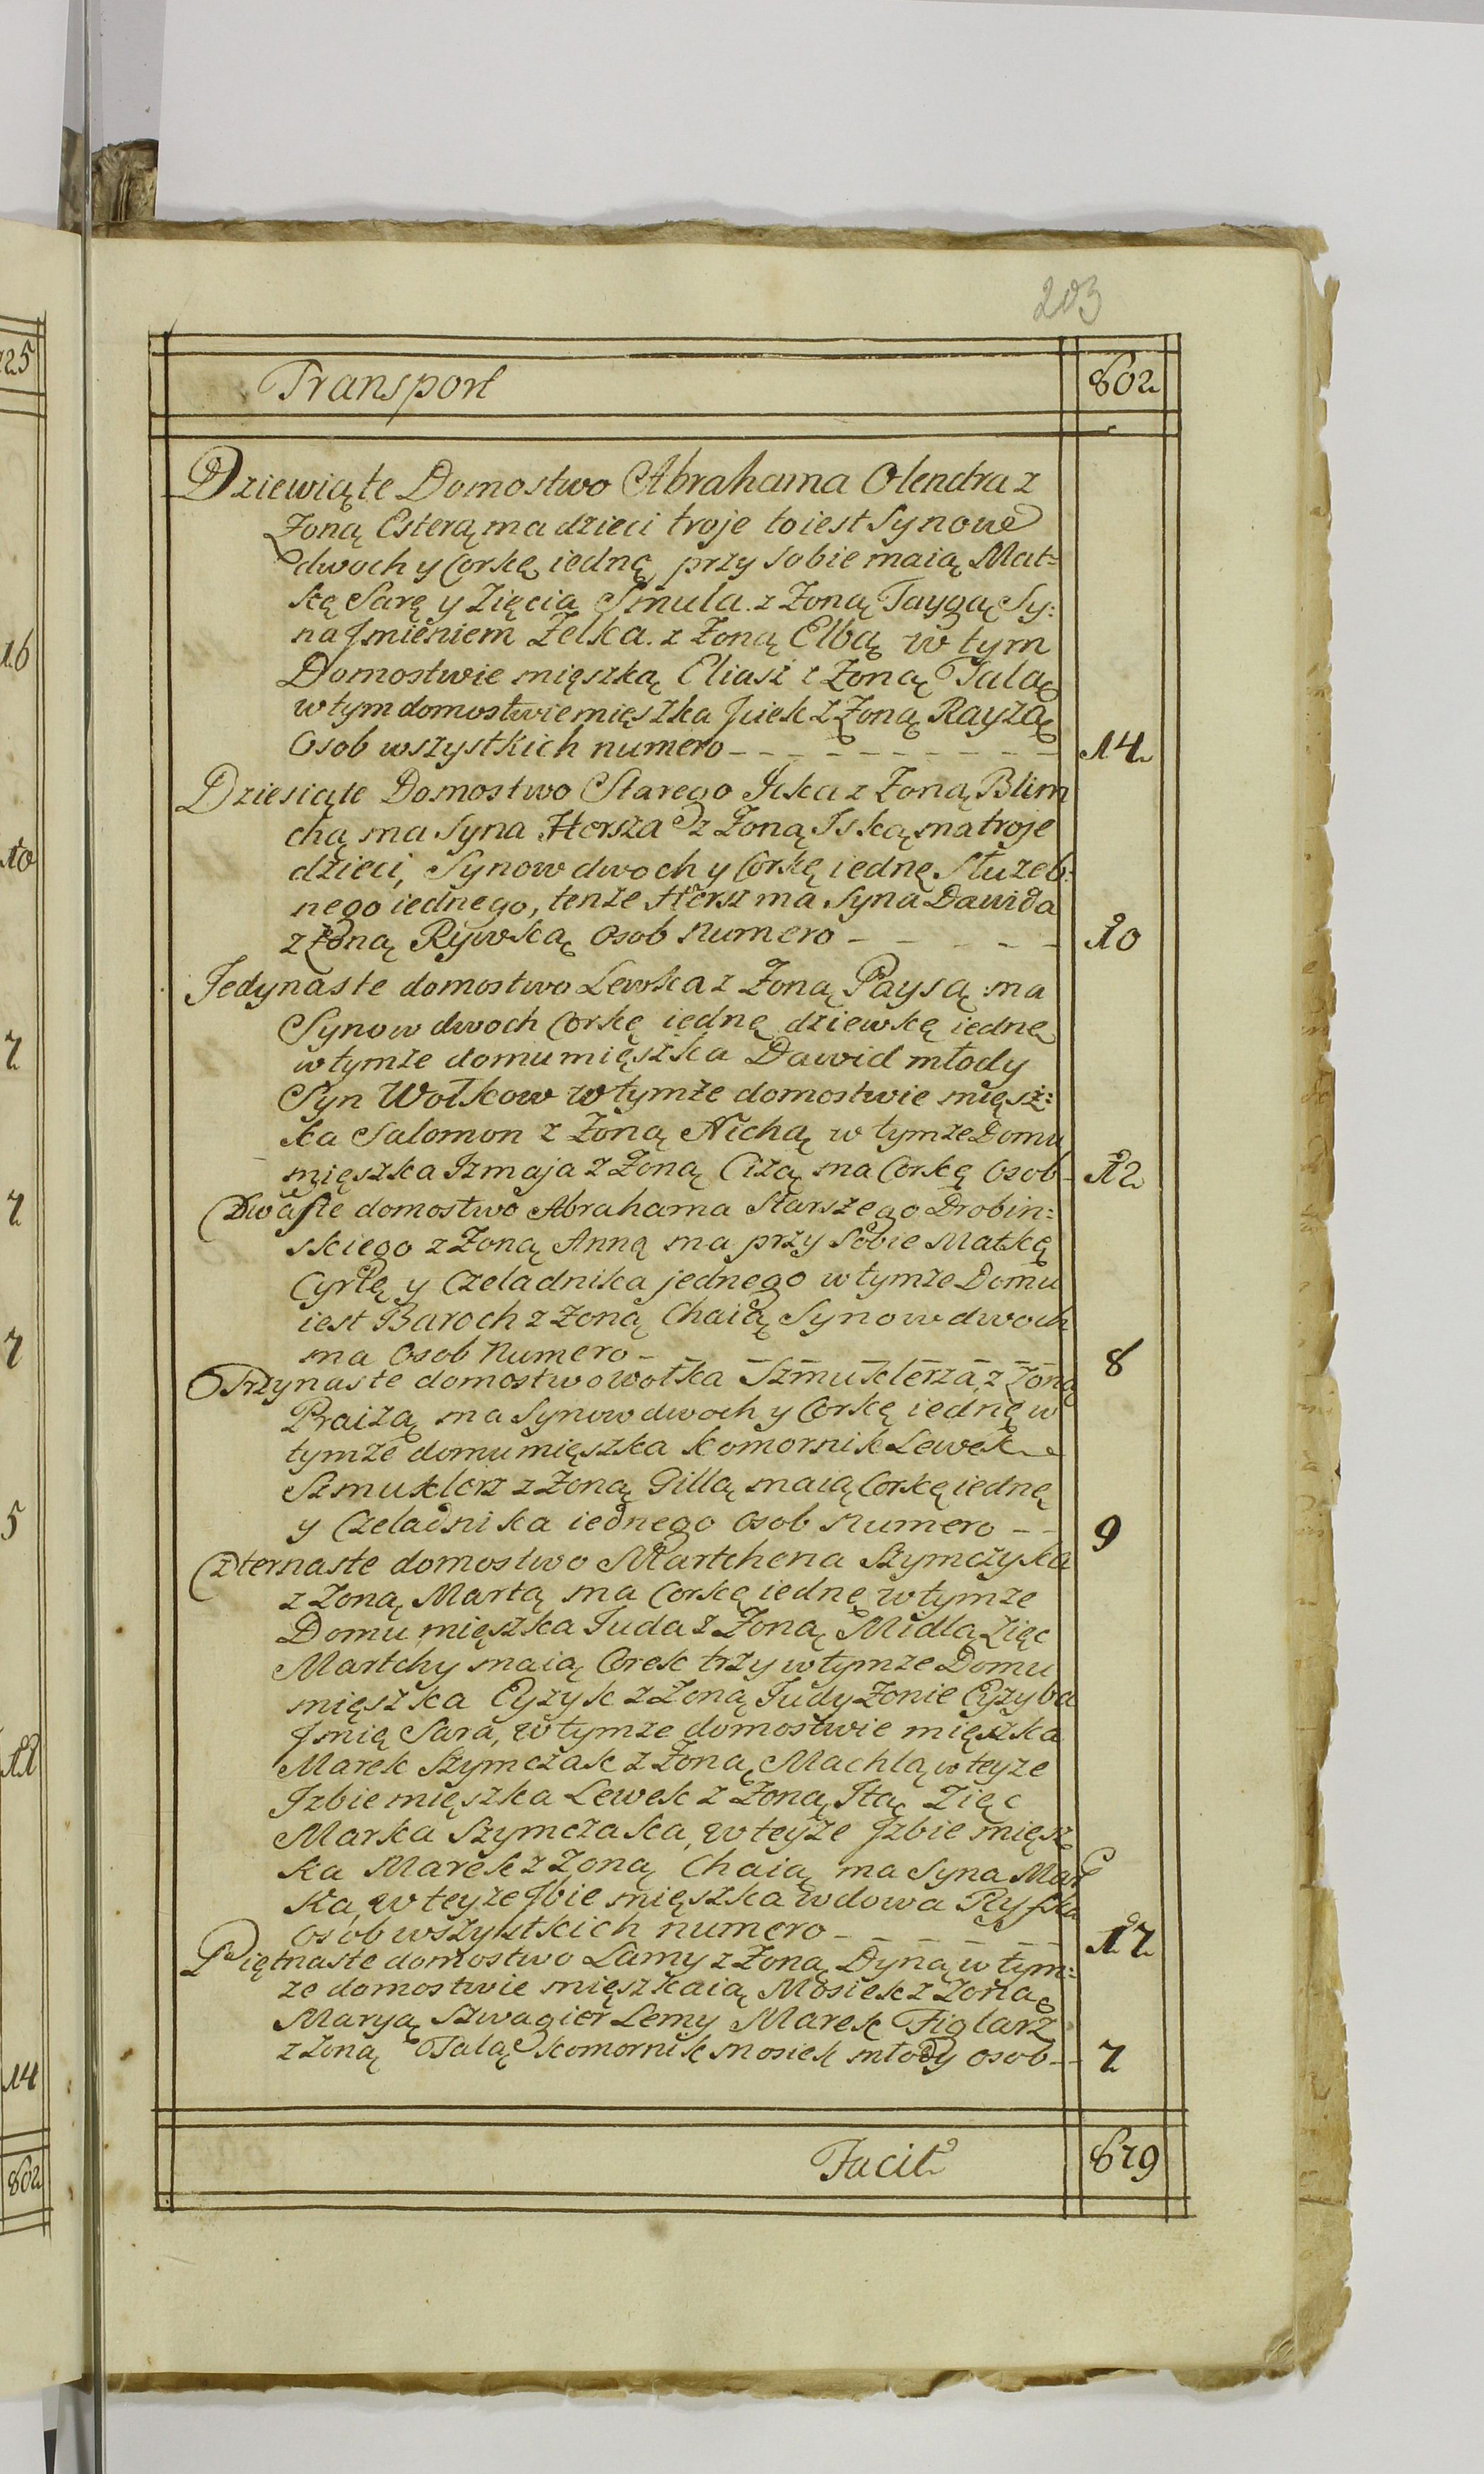 203
Transport 802
Dziewiąte Domostwo Abrahama Olendra z
Zoną Esterą ma dzieci troje to iest Synow
dwoch y Corkę iedną przy sobie maią Mat=
kę Sarę y Zięcia Smula z Zoną Taygą Sy:
na Jmieniem Zelka z Zoną Elbą w tym
Domostwie mięszka Eliasz z Zoną Talą
w tym domostwie mięszka Jciek z Zoną Rayzą
Osob wszystkich numero - - - - - - - - - - 14
Dziesiąte Domostwo Starego Jcka z Zoną Blim
chą ma Syna Hersza z Zoną Iską ma troje
dzieci, Synow dwoch y Corkę iednę Służeb:
nego iednego, tenze Hersz ma Syna Dawida
z Zoną Rywką Osob Numero - - - - - - 10
Jedynaste domostwo Lewka z Zoną Paysą ma
Synow dwoch Corkę iednę dziewkę iednę
w tymze domu mięszka Dawid młody
Syn Wołkow w tymze domostwie mięsz:
ka Salomon z Zoną Nichą w tymze Domu
mięszka Izmaja z Zoną Cizą ma Corkę Osob - 12
Dwaste domostwo Abrahama Starszego Drobin:
skiego z Zoną Anną ma przy Sobie Matkę
Cyrlę y Czeladnika jednego w tymze Domu
iest Baroch z Zoną Chaią Synow dwoch
ma Osob Numero - - - - - - - - 8
Trzynaste domostwo Wołka Szmuklerza, z Zoną
Praizą ma Synow dwoch y Corkę iednę w
tymze domu mięszka komornik Lewek
Szmuklerz z Zoną Gillą maią Corkę iednę
y Czeladnika iednego Osob Numero - - 9
Czternaste domostwo Martchena Szymczyka
z Zoną Martą ma Corkę iednę w tymze
Domu mięszka Juda z Zoną Midlą Zięc
Martchy maią Corek trzy w tymze Domu
mięszka Cyzyk z Zoną Judy Zonie
Jmię Sara, w tymze domostwie mięszka
Marek Szymczak z Zoną Machlą w teyze
Jzbie mięszka Lewek z Zoną Itą Zięc
Marka Szymczaka, w teyze Jzbie mięsz
ka Marek z Zoną Chaią ma Syna Mar
ka, w teyze Jbie mięszka wdowa Ryfka
osob wszystkich numero - - - - - - 17
Piętnaste domostwo Lamy z Zoną Dyną w tym:
ze domostwie mięszkaią Mosiek z Zoną
Maryą Szwagier Lemy Marek Figlarz
z Zoną Talą komornik Mosiek młody osob - - 7
Facit 879